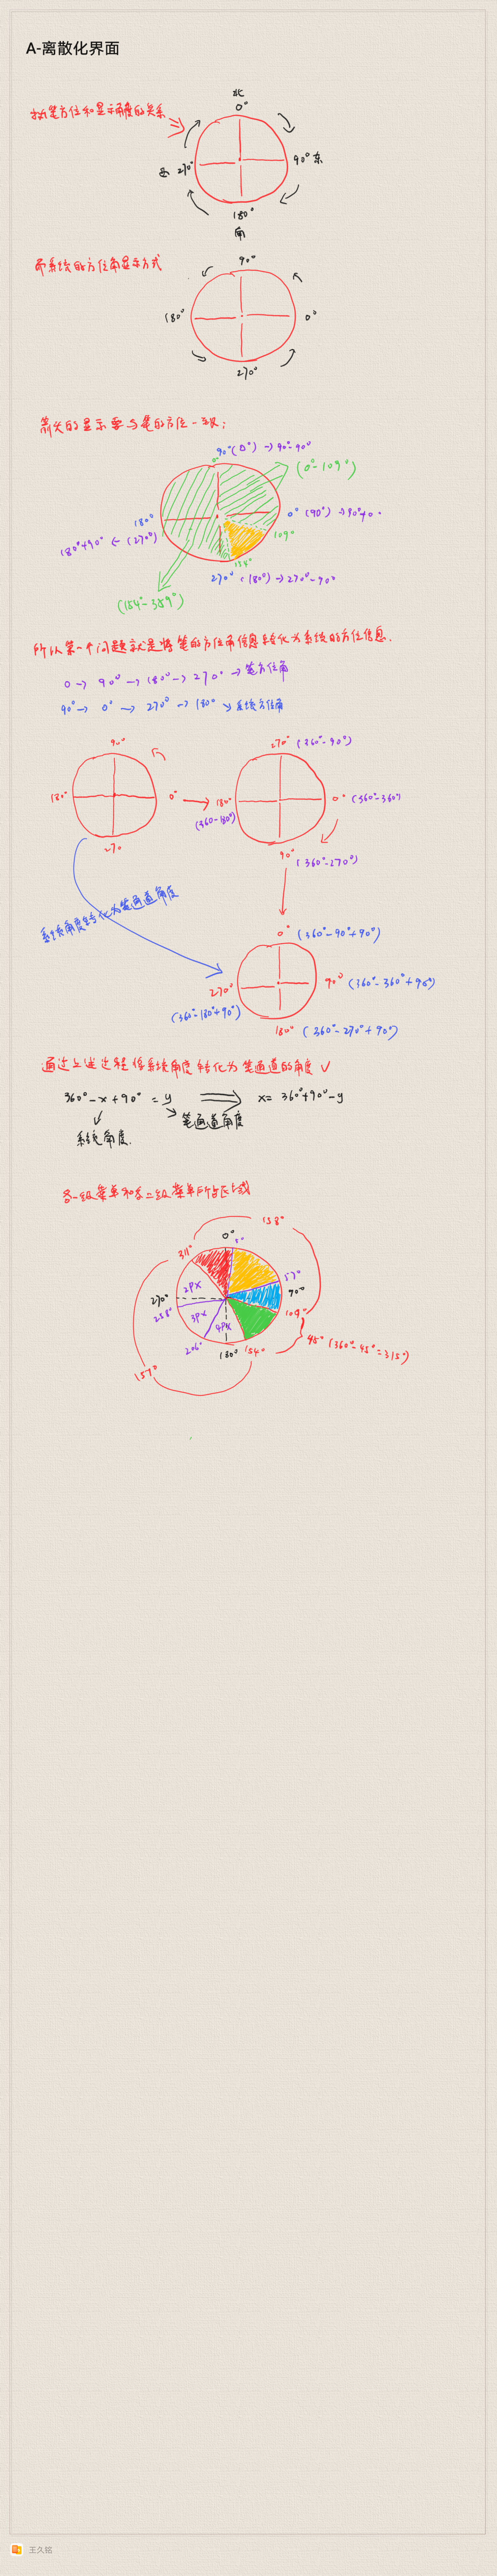 A-离散化界面
北
0°
执笔方位和显示角度的关系
西 270°
90° 东
180°
南
而系统的方位角显示方式
90°
180°
0°
270°
箭头的显示要与笔的方位一致;
90° (0°) → 90°-90°
0°
(0°-109°)
180°
0° (90°) →
180°+90° ← (270°)
109°
154°
270° (180°) → 270°-90°
(154°-359°)
所以第一个问题就是将笔的方位角信息转化为系统的方位信息.
0 → 90° → 180° → 270° → 笔方位角
90° → 0° → 270° → 180° → 系统方位角
90°
270° (360°-90°)
180°
0°
180°
0° (360°-360°)
(360-180°)
270
90° (360°-270°)
系统角度转化为笔通道角度
0° (360°-90°+90°)
270°
90° (360°-360°+90°)
(360°-180°+90°)
180° (360°-270°+90°)
通过上述过程将系统角度转化为笔通道的角度 ✓
360°-x+90° = y ⇒ x= 360°+90°-y
笔通道角度
系统角度.
各一级菜单和各二级菜单所占区域
158°
0°
5°
311°
57°
2PX
90°
270°
258°
3PX
109°
4PX
206°
180°
154°
45° (360°-45°=315°)
157°
王久铭